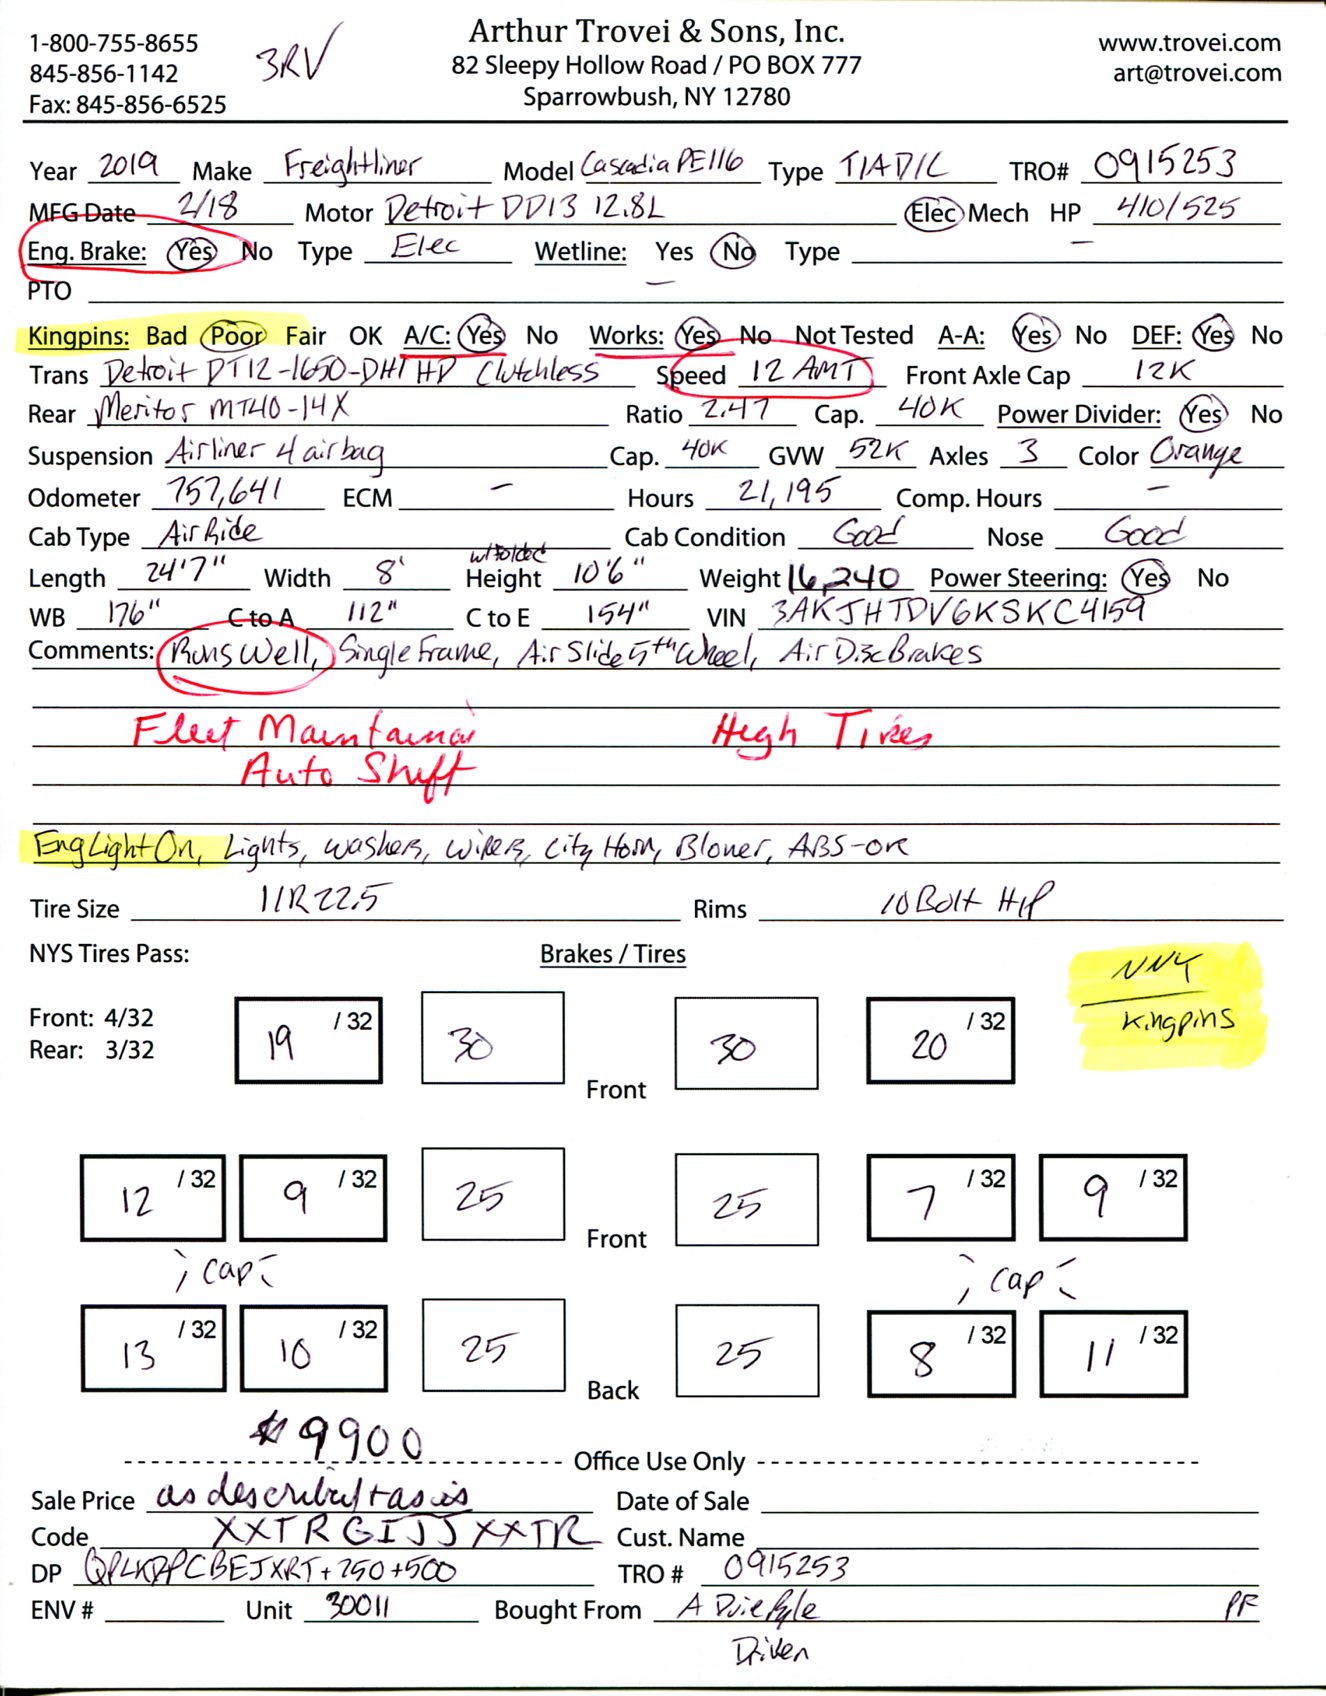 1-800-755-8655
845-856-1142
Fax: 845-856-6525
3RV
Arthur Trovei & Sons, Inc.
82 Sleepy Hollow Road / PO BOX 777
Sparrowbush, NY 12780
www.trovei.com
art@trovei.com
Year 2019 Make Freightliner Model Cascadia PE116 Type T/A D/C TRO# 0915253
MFG Date 2/18 Motor Detroit DD13 12.8L Elec Mech HP 410/525
Eng. Brake: Yes No Type Elec Wetline: Yes No Type —
PTO —
Kingpins: Bad Poor Fair OK A/C: Yes No Works: Yes No Not Tested A-A: Yes No DEF: Yes No
Trans Detroit DT12-1650-DH1 HD Clutchless Speed 12 AMT Front Axle Cap 12K
Rear Meritor MT40-14X Ratio 2.47 Cap. 40K Power Divider: Yes No
Suspension Airliner 4 airbag Cap. 40K GVW 52K Axles 3 Color Orange
Odometer 757,641 ECM — Hours 21,195 Comp. Hours —
Cab Type Air Ride Cab Condition Good Nose Good
w/ folded
Length 24'7" Width 8' Height 10'6" Weight 16,240 Power Steering: Yes No
WB 176" C to A 112" C to E 154" VIN 3AKJHTDV6KSKC4159
Comments: Runs Well, Single Frame, Air Slide 5th Wheel, Air Disc Brakes
Fleet Maintained High Tires
Auto Shift
Eng Light On, Lights, washers, wipers, city Horn, Blower, ABS-ok
Tire Size 11R22.5 Rims 10 Bolt H/P
NYS Tires Pass: Brakes / Tires
NNY
Kingpins
Front: 4/32
Rear: 3/32
19 /32 30 30 20 /32
Front
12 /32 9 /32 25 25 7 /32 9 /32
Front
Cap Cap
13 /32 10 /32 25 25 8 /32 11 /32
Back
$9900
Office Use Only
Sale Price as described + as is Date of Sale
Code XXTRGIJJXXTR Cust. Name
DP +250+500 TRO # 0915253
ENV # Unit 30011 Bought From A Duie Pyle PF
Driven